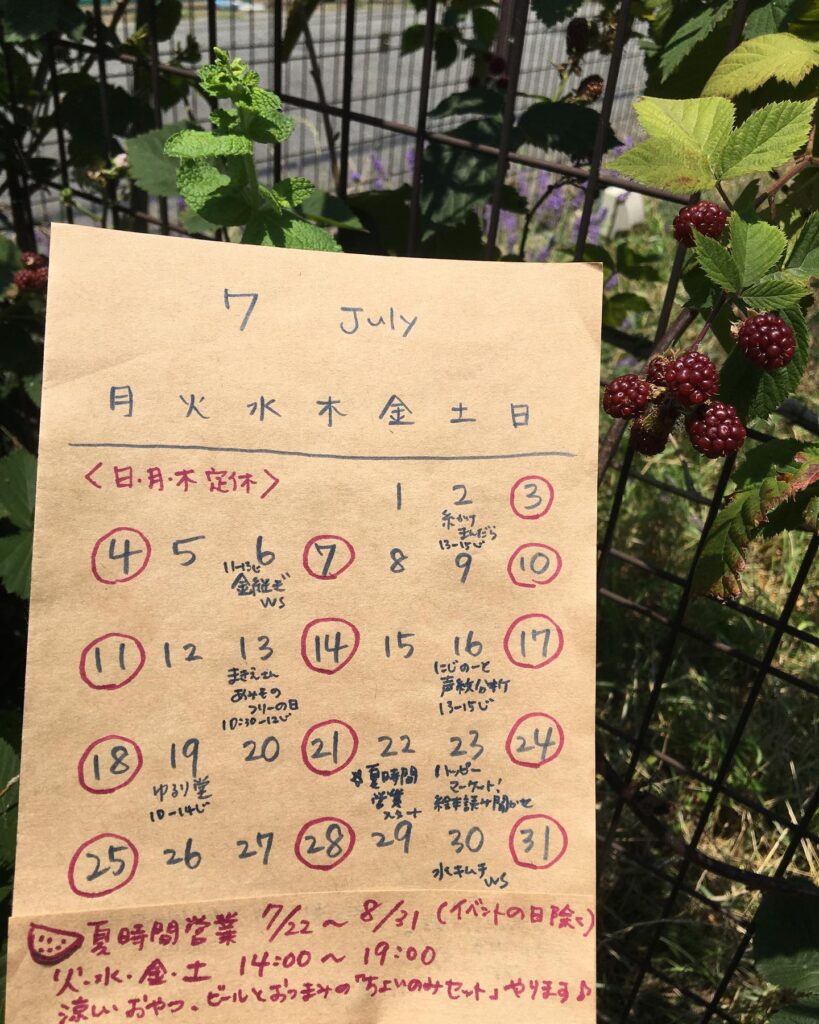 7 July
月 火 水 木 金 土 日
<日・月・木 定休>
1 2 3
糸かけ
まんだら
13-15じ
4 5 6 7 8 9 10
11-13じ
金継ぎ
WS
11 12 13 14 15 16 17
あみもの
フリーの日
10:30-12じ
にじのーと
声紋分析
13-15じ
18 19 20 21 22 23 24
ゆるり堂
10-14じ
夏時間
営業
スタート
ハッピー
マーケット!
絵本読み聞かせ
25 26 27 28 29 30 31
水キムチ
WS
夏時間営業 7/22〜8/31 (イベントの日除く)
火・水・金・土 14:00〜19:00
涼しいおやつ、ビールとおつまみの「ちょいのみセット」やります♪